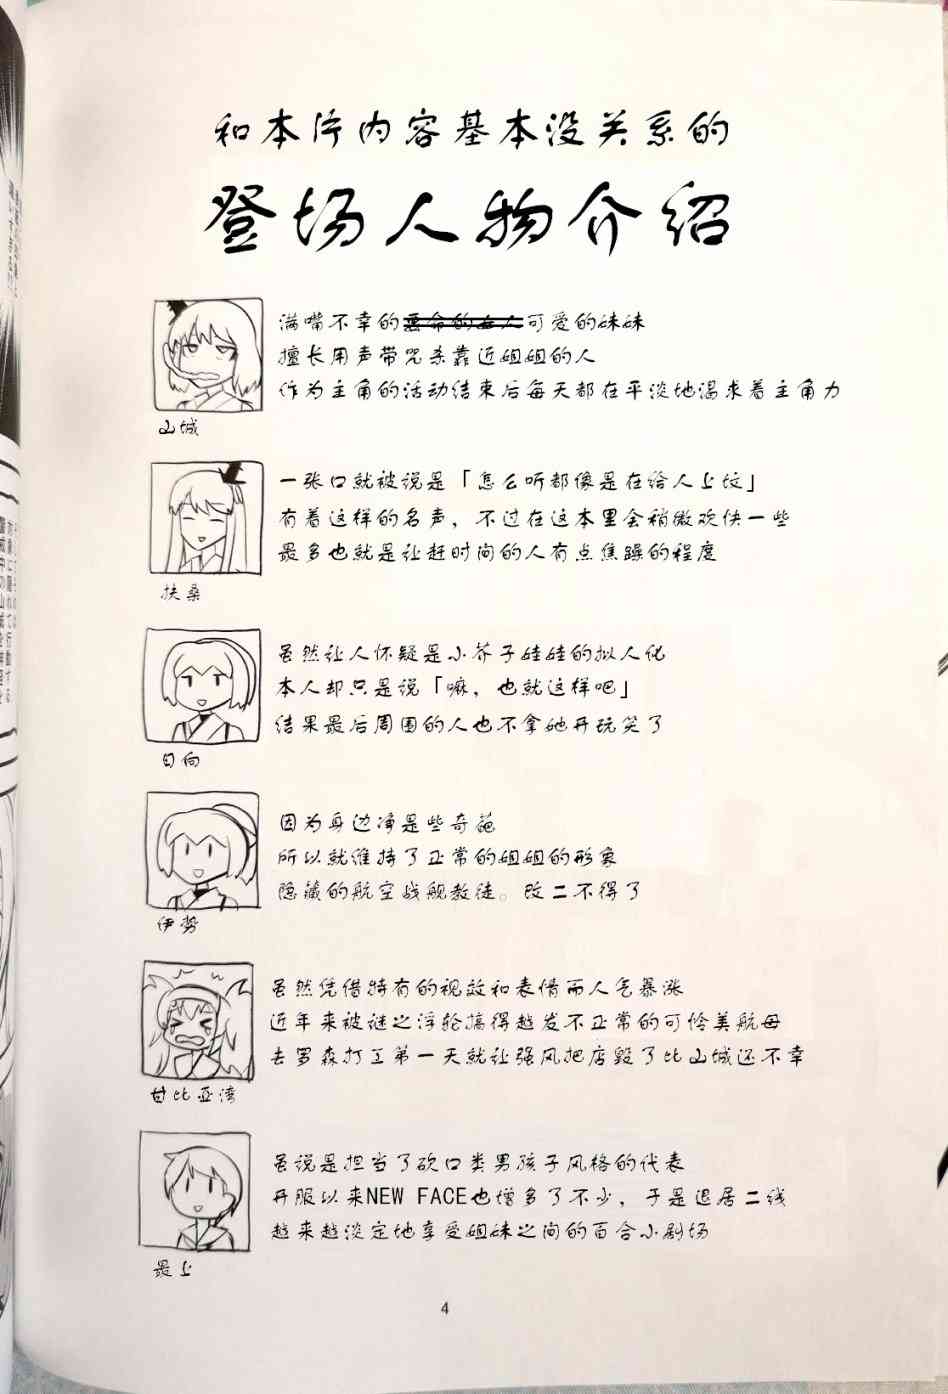 和本片内容基本没关系的
登场人物介绍
满嘴不幸的要命的女人可爱的妹妹
擅长用声带咒杀靠近姐姐的人
作为主角的活动结束后每天都在平淡地渴求着主角力
山城
一张口就被说是「怎么听都像是在给人上坟」
有着这样的名声，不过在这本里会稍微欢快一些
最多也就是让赶时间的人有点焦躁的程度
扶桑
虽然让人怀疑是小芥子娃娃的拟人化
本人却只是说「嘛，也就这样吧」
结果最后周围的人也不拿她开玩笑了
日向
因为身边净是些奇葩
所以就维持了正常的姐姐的形象
隐藏的航空战舰教徒。改二不得了
伊势
虽然凭借特有的视效和表情而人气暴涨
近年来被谜之浮轮搞得越发不正常的可怜美航母
去罗森打工第一天就让强风把店毁了比山城还不幸
甘比亚湾
虽说是担当了砍口类男孩子风格的代表
开服以来NEW FACE也增多了不少，于是退居二线
越来越淡定地享受姐妹之间的百合小剧场
最上
4